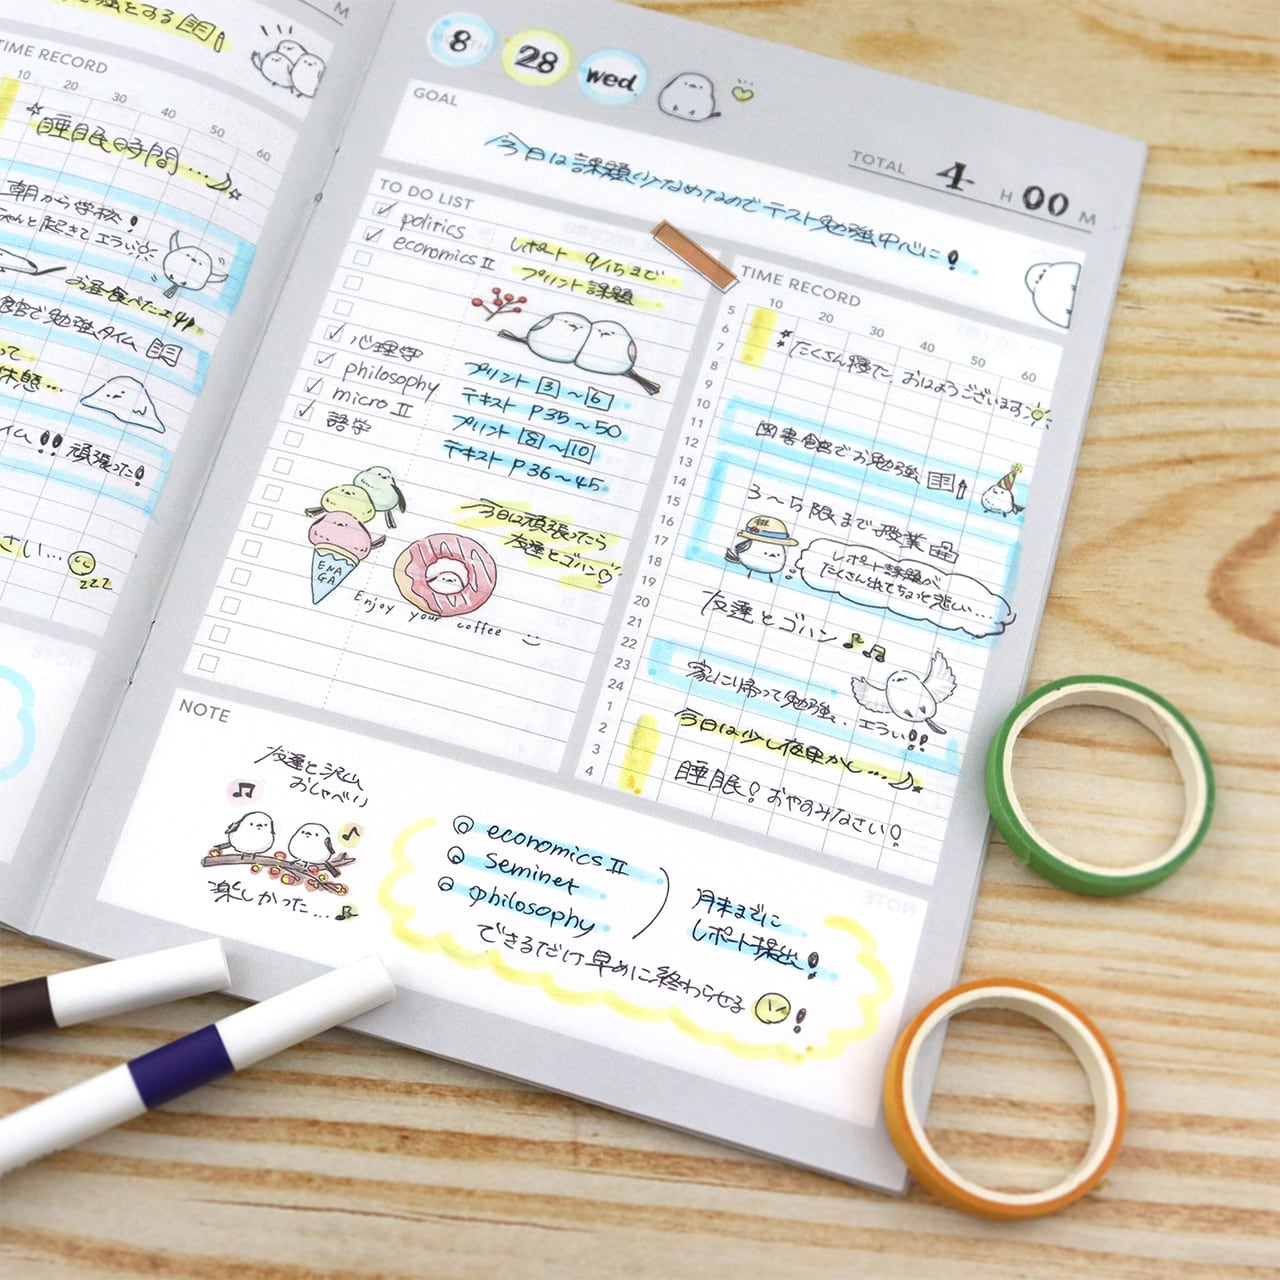 強をする
M
TIME RECORD
10 20 30 40 50 60
睡眠時間…
朝から学校!
ちゃんと起きてエラい
お昼食べたェ
館で勉強タイム
って
休憩…
イム!! 頑張った!
さい…
zzz
8
28
wed
GOAL
TOTAL 4 H 00 M
今日は課題少なめなのでテスト勉強中心に!
TO DO LIST
politics
economics II
レポート 9/15まで
プリント課題
心理学
philosophy
micro II
語学
プリント 3 〜 6
テキスト P35〜50
プリント 8 〜 10
テキスト P36〜45
今日は頑張ったら
友達とゴハン♡
ENA
GA
Enjoy your coffee
TIME RECORD
10 20 30 40 50 60
5
6
7
8
9
10
11
12
13
14
15
16
17
18
19
20
21
22
23
24
1
2
3
4
たくさん寝た。おはようございます
図書館でお勉強
3〜5限まで授業
レポート課題が
たくさん出てちょっと悲しい…
友達とゴハン♪♫
家に帰って勉強。エラい!!
今日は少し夜更かし…
睡眠! おやすみなさい!
NOTE
友達と沢山
おしゃべり
楽しかった…♪
economics II
seminer
philosophy
月末までに
レポート提出!
できるだけ早めに終わらせる!